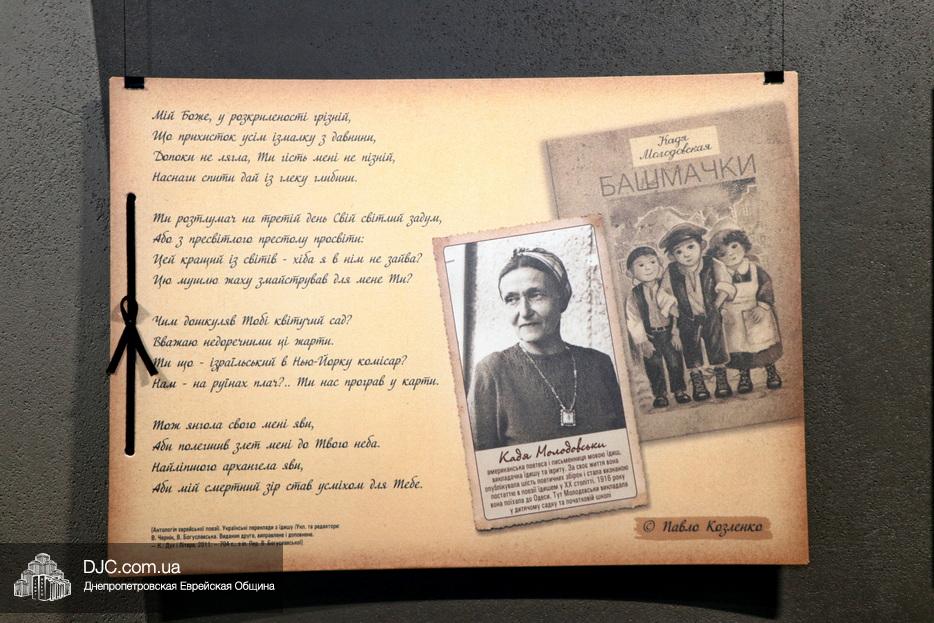 Мій Боже, у розкриленості грізній,
Що прихисток усім ізмалку з давнини,
Допоки не лягла, Ти гість мені не пізній,
Наснаги спити дай із глеку глибини.
Ти розтлумач на третій день Свій світлий задум,
Або з пресвітлого престолу просвіти:
Цей кращий із світів - хіба я в нім не зайва?
Цю мушлю жаху змайстрував для мене Ти?
Чим дошкуляв Тобі квітучий сад?
Вважаю недоречними ці жарти.
Ти що - ізраїльський в Нью-Йорку комісар?
Нам - на руїнах плач?.. Ти нас програв у карти.
Тож янгола свого мені яви,
Аби полегшив злет мені до Твого неба.
Найліпшого архангела яви,
Аби мій смертний зір став усміхом для Тебе.
(Антологія єврейської поезії. Українські переклади з їдишу /Укл. та редактори:
В. Чернін, В. Богуславська. Видання друге, виправлене і доповнене.
– К.: Дух і Літера, 2011. – 704 с.; з ін. Пер. В. Богуславської)
Кадя
Молодовская
БАШМАЧКИ
Кадя Молодовськи
американська поетеса і письменниця мовою їдиш,
викладачка їдишу та івриту. За своє життя вона
опублікувала шість поетичних збірок і стала визнаною
постаттю в поезії їдишем у XX столітті. 1916 року
вона поїхала до Одеси. Тут Молодовськи викладала
у дитячому садку та початковій школі
© Павло Козленко
DJC.com.ua
Днепропетровская Еврейская Община